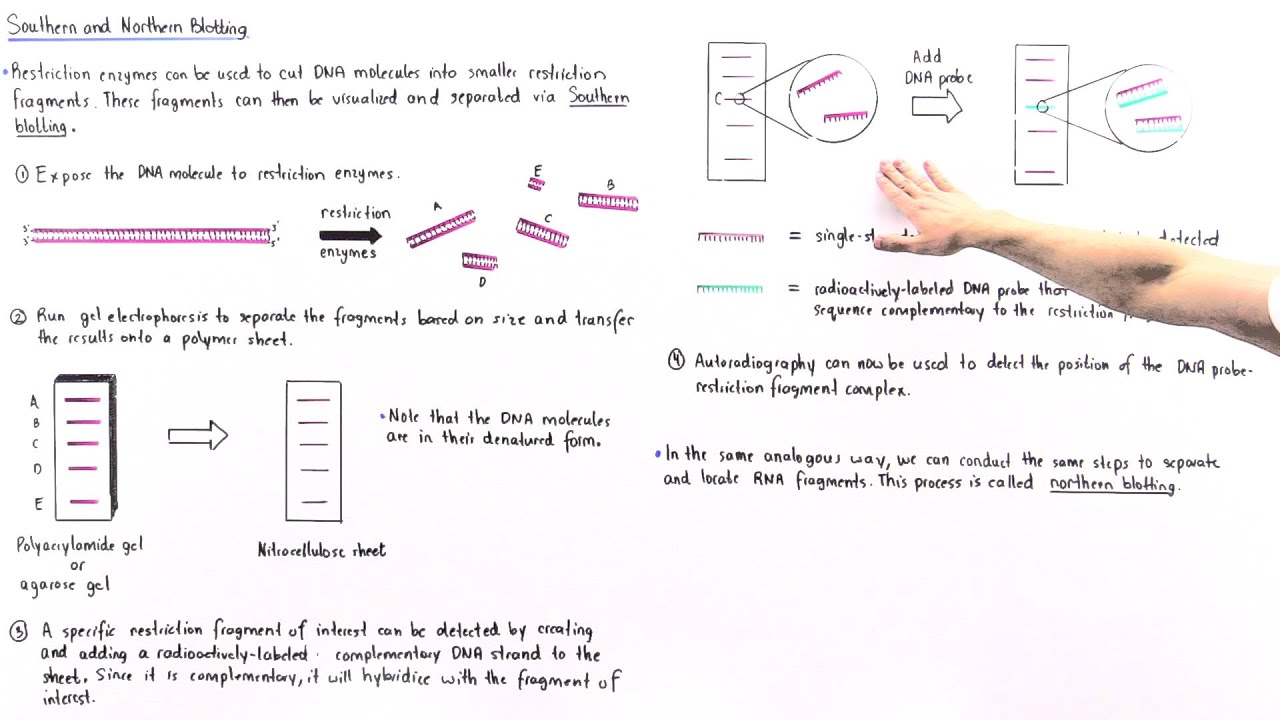 Southern and Northern Blotting
• Restriction enzymes can be used to cut DNA molecules into smaller restriction
fragments. These fragments can then be visualized and separated via Southern
blotting.
① Expose the DNA molecule to restriction enzymes.
5' 3'
3' 5'
restriction
enzymes
A
E
B
C
D
② Run gel electrophoresis to separate the fragments based on size and transfer
the results onto a polymer sheet.
A
B
C
D
E
Polyacrylamide gel
or
agarose gel
Nitrocellulose sheet
• Note that the DNA molecules
are in their denatured form.
③ A specific restriction fragment of interest can be detected by creating
and adding a radioactively-labeled complementary DNA strand to the
sheet. Since it is complementary, it will hybridice with the fragment of
interest.
C
Add
DNA probe
= single-st
= radioactively-labeled DNA probe
sequence complementary to the restriction
④ Autoradiography can now be used to detect the position of the DNA probe-
restriction fragment complex.
• In the same analogous way, we can conduct the same steps to separate
and locate RNA fragments. This process is called northern blotting.